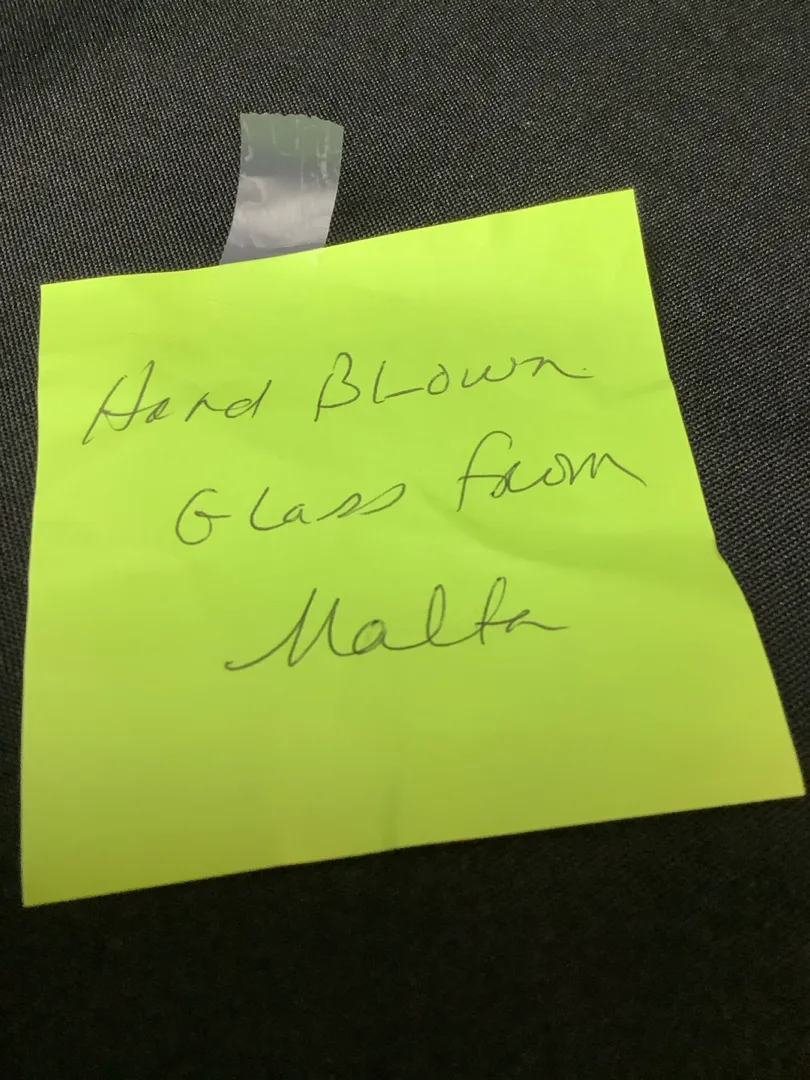 Hand Blown
Glass from
Malta